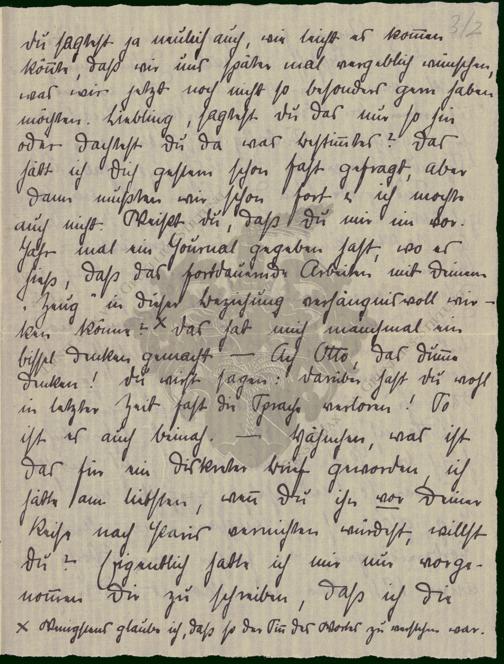 312
du sagtest ja neulich auch, wie leicht es kom̅en
kön̅te, daß wir uns später mal vergeblich wünschen,
was wir jetzt noch nicht so besonders gern haben
möchten. Liebling, sagtest du das nur so hin
oder dachtest du da was bestim̅tes? Das
hätt ich dich gestern schon fast gefragt, aber
dann mußten wir schon fort & ich mochte
auch nicht. Weißt du, daß du mir im vor.
Jahr mal ein Journal gegeben hast, wo es
hieß, daß das fortdauernde Arbeiten mit deinem
"Zeug" in dieser Beziehung verhängnisvoll wir-
ken könne? x Das hat mich manchmal ein
bissel denken gemacht — Ach Otto, das dum̅e
denken! Du wirst sagen: darüber hast du wohl
in letzter Zeit fast die Sprache verloren! So
ist es auch beinah. — was ist
das für ein diskreter Brief geworden, ich
hätte am liebsten, wen̅ du ihn vor deiner
Reise nach Paris vernichten würdest, willst
du? (Eigentlich hatte ich mir nur vorge-
nom̅en Dir zu schreiben, daß ich die
x Wenigstens glaube ich, daß so der Sin̅ des Wortes zu verstehen war.